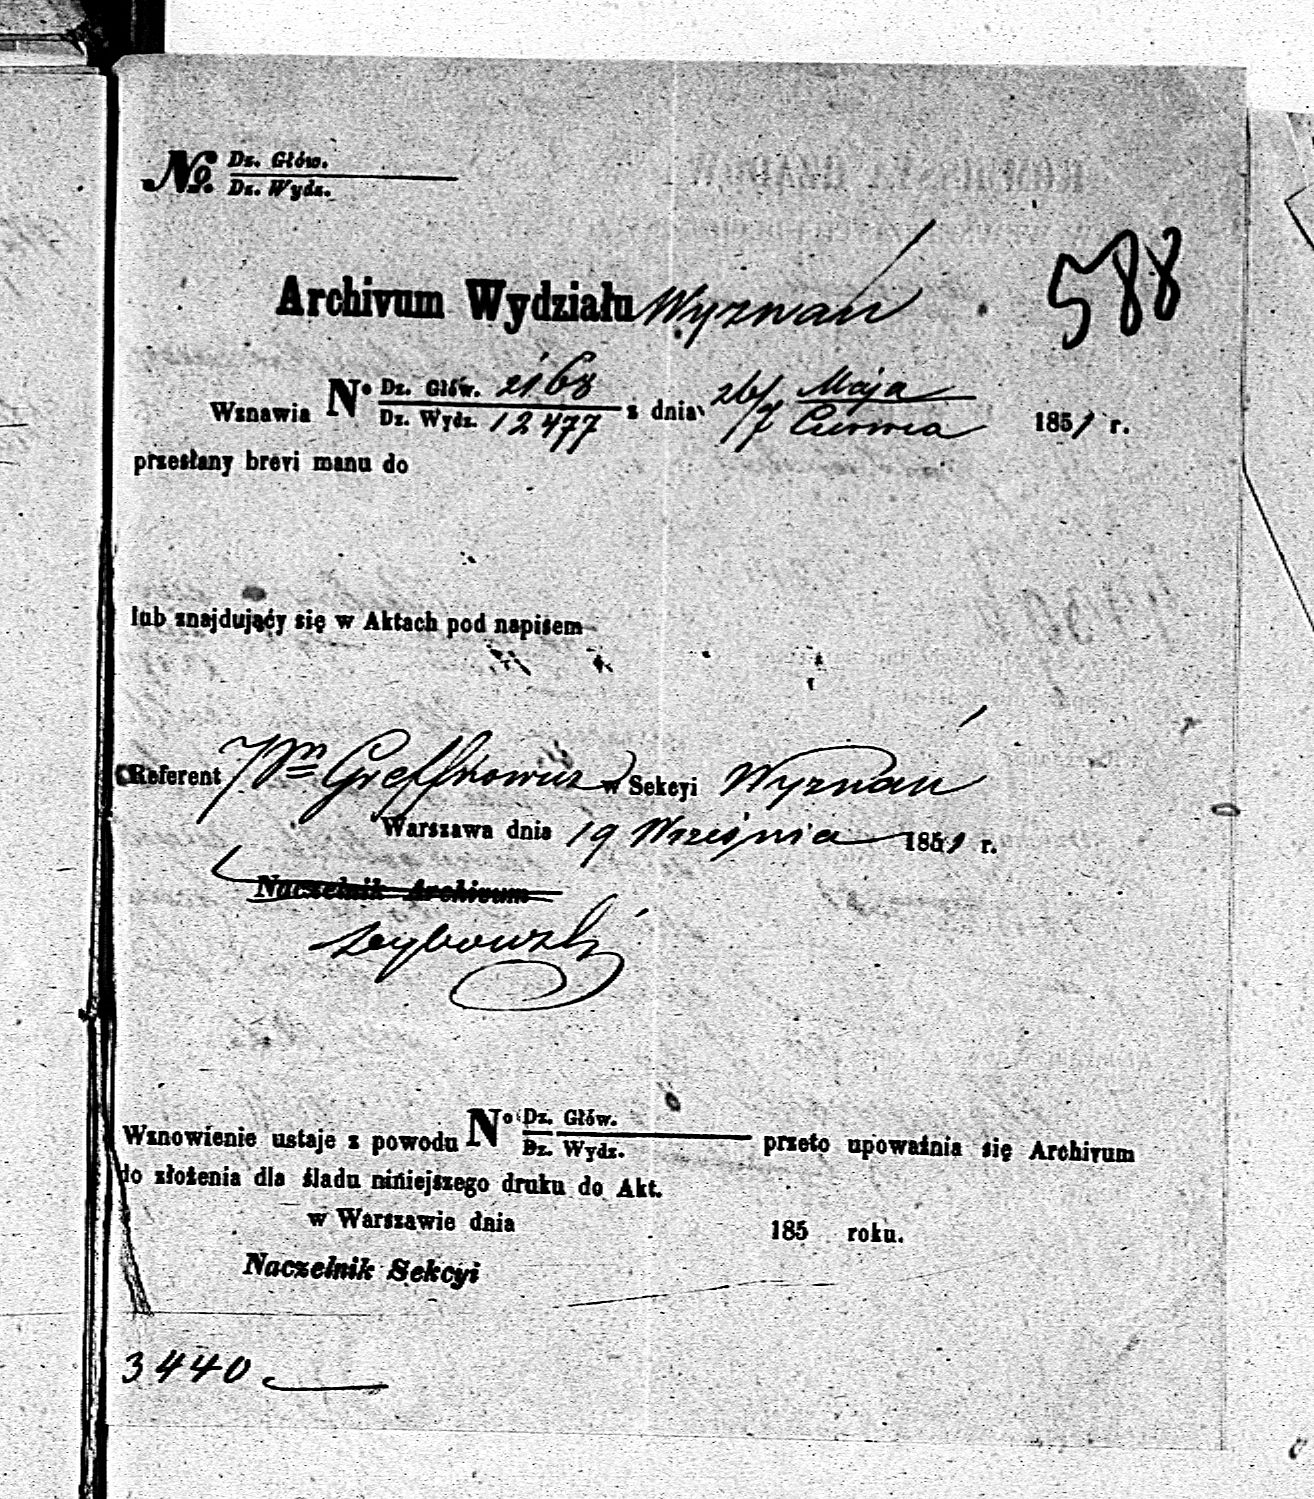 No. Dz. Głów.
Dz. Wydz.
588
Archivum Wydziału Wyznań
Wznawia No Dz. Głów. 2168
Dz. Wydz. 12477 z dnia 26/7 Maja
Czerwca 1851 r.
przesłany brevi manu do
lub znajdujący się w Aktach pod napisem
Referent w Sekcyi Wyznań
Warszawa dnia 19 Września 1851 r.
Naczelnik Archivum
Wznowienie ustaje z powodu No Dz. Głów.
Dz. Wydz. przeto upoważnia się Archivum
do złożenia dla śladu niniejszego druku do Akt.
w Warszawie dnia 185 roku.
Naczelnik Sekcyi
3440